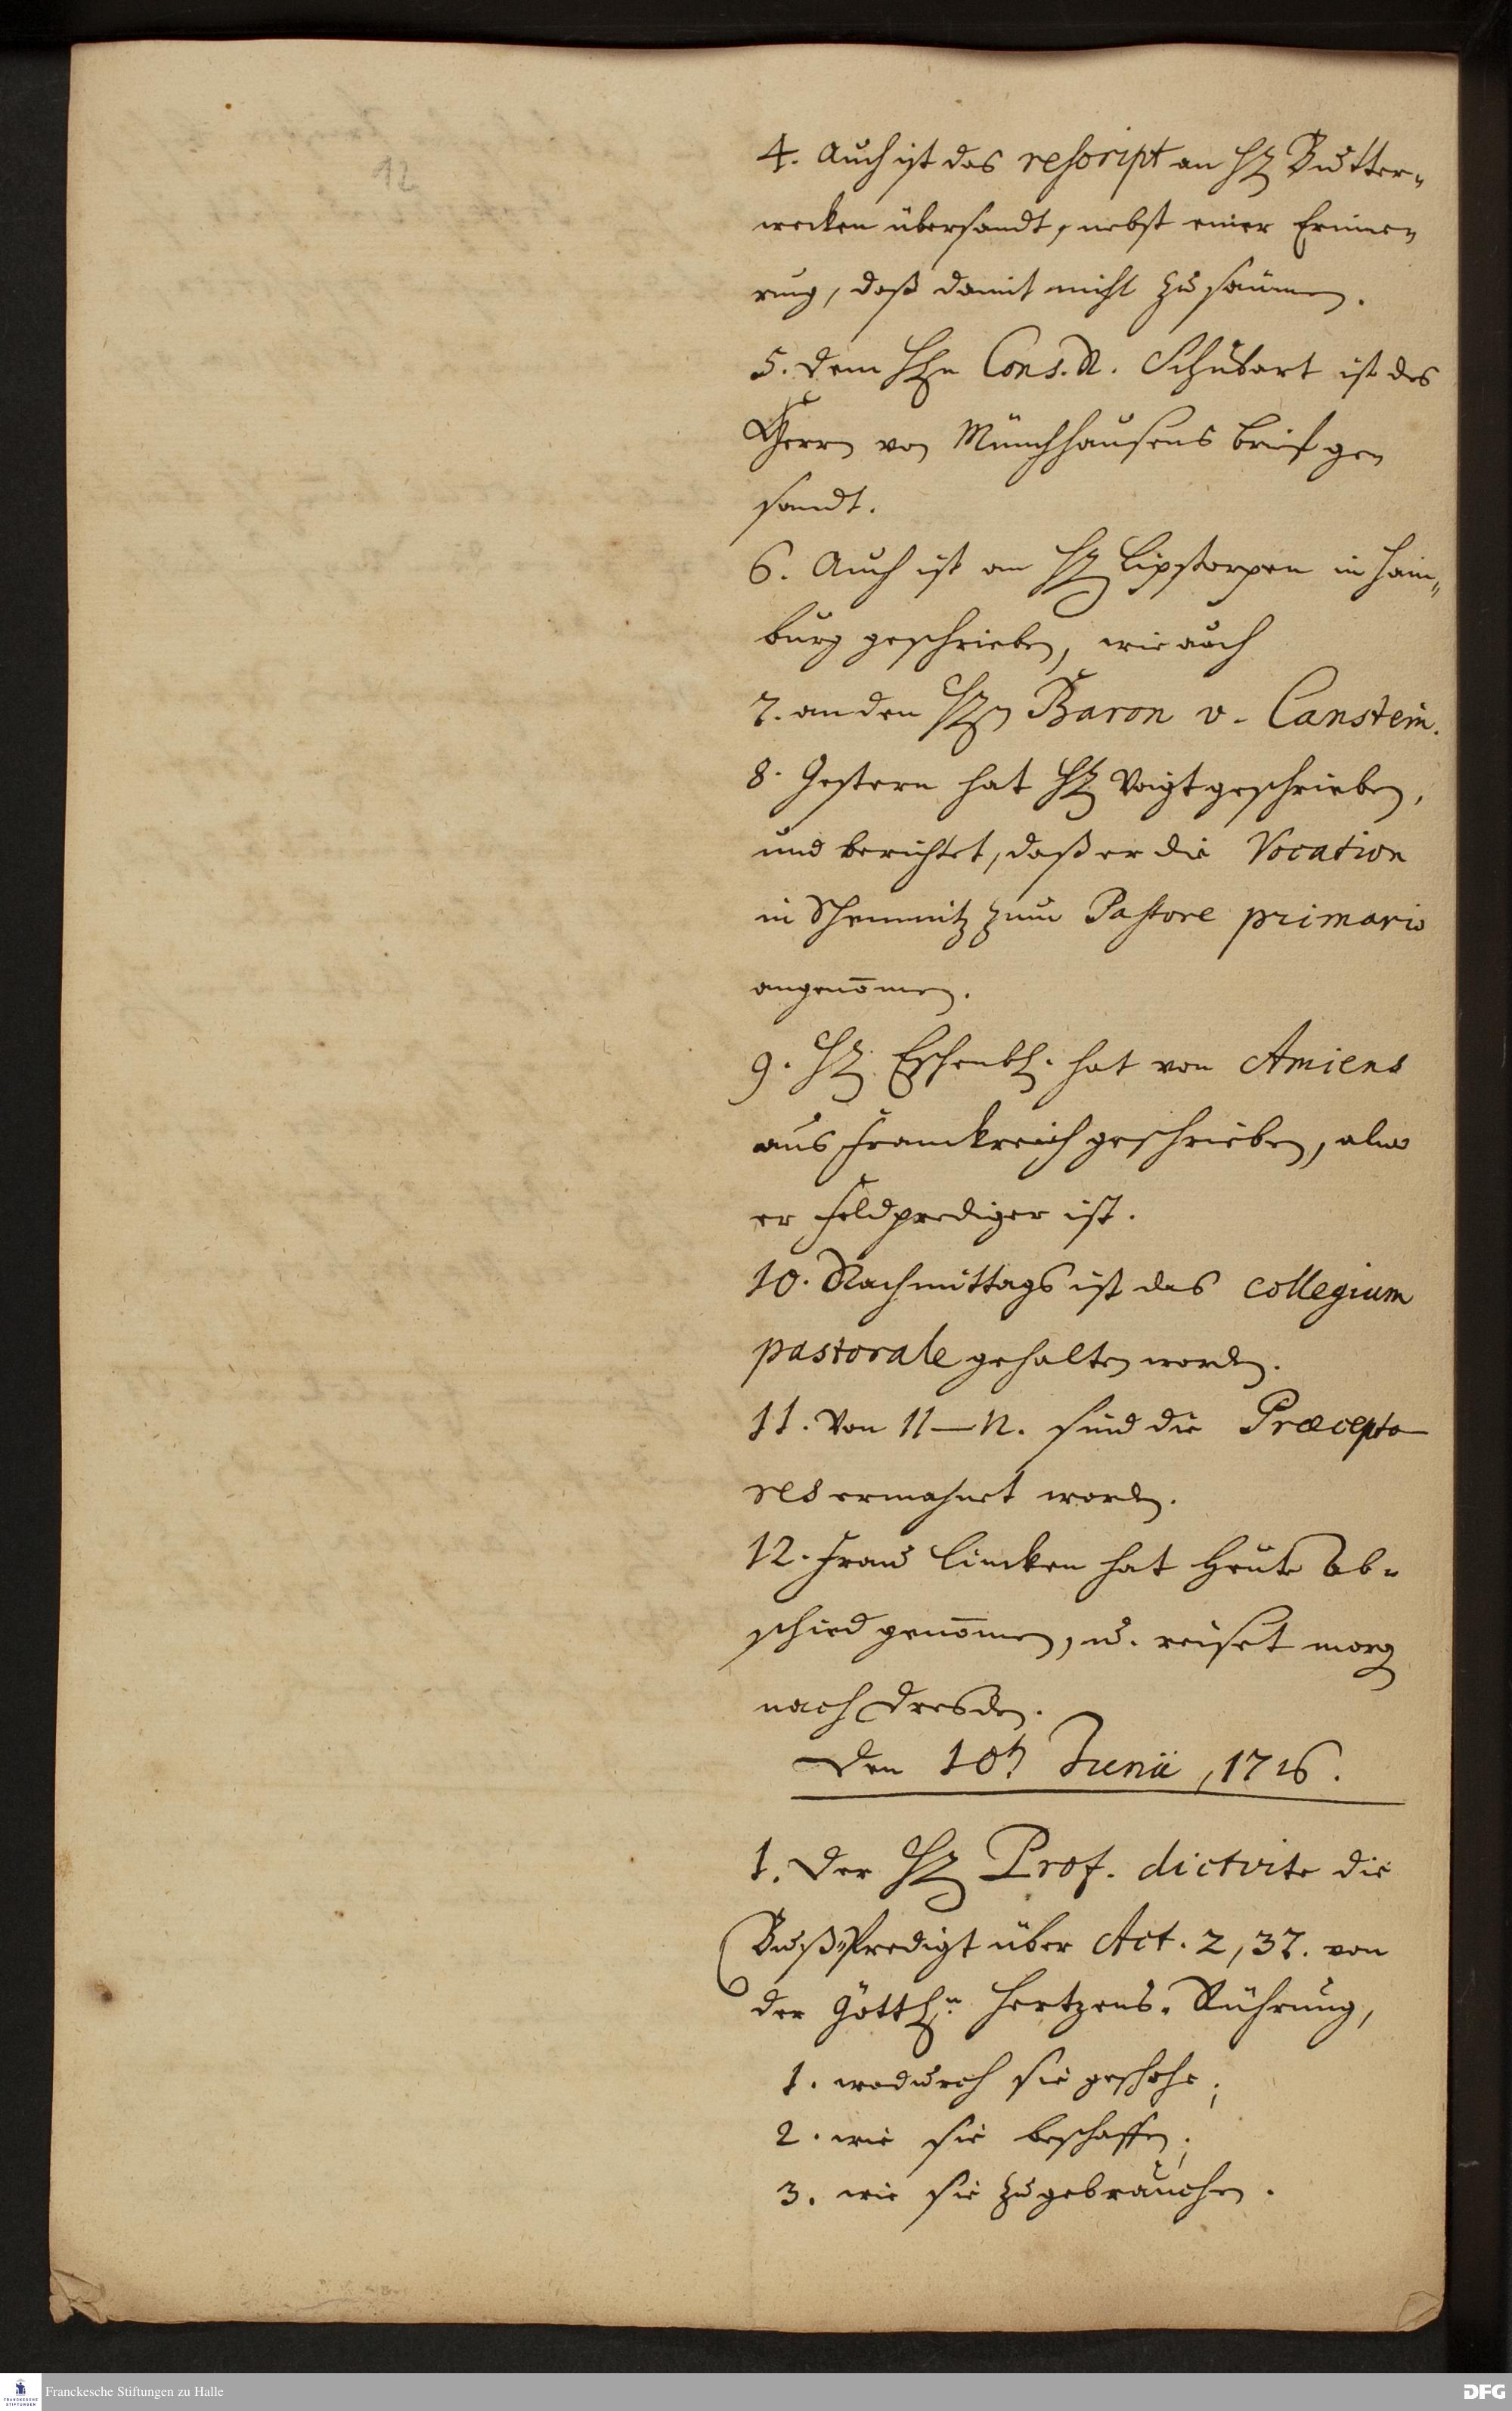 12
4. Auch ist das rescript an H. Butter-
wecken übersandt, nebst einer Erinne-
rung, daß damit nicht zu säumen.
5. Dem Hn Cons. R. Schubart ist des
Herrn von Münchhausens brief ge-
sandt.
6. Auch ist an H. Lipstorpen in Ham-
burg geschrieben, wie auch
7. an den Hn Baron v. Canstein.
8. Gestern hat H. Voigt geschrieben,
und berichtet, daß er die Vocation
in Schemnitz zum Pastore primario
angenom̄en.
9. H. Eschenb. hat von Amiens
aus Franckreich geschrieben, alwo
er Feldprediger ist.
10. Nachmittags ist das collegium
pastorale gehalten worden.
11. Von 11–12. sind die Præcepto-
res ermahnet worden.
12. Frau Lincken hat heute Ab-
schied genom̄en, u. reiset morg
nach Dresden.
Den 10t. Junii, 1716.
1. Der H. Prof. dictirte die
Buß-Predigt über Act. 2, 37. von
der Göttln. Hertzens-Rührung,
1. wodurch sie geschehe;
2. wie sie beschaffen;
3. wie sie zu gebrauchen.
Franckesche Stiftungen zu Halle
DFG